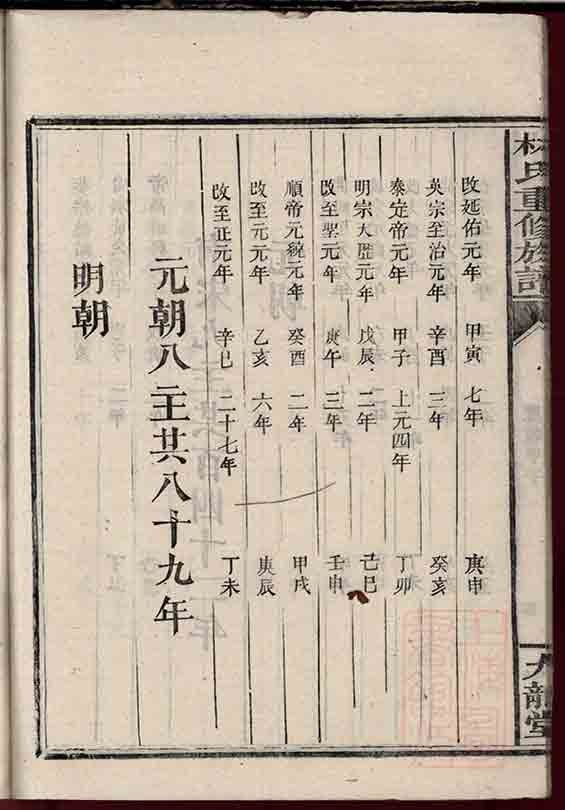 林氏重修族譜
九龍堂
改延佑元年 甲寅 七年 庚申
英宗至治元年 辛酉 三年 癸亥
泰定帝元年 甲子 上元四年 丁卯
明宗天歷元年 戊辰 二年 己巳
改至聖元年 庚午 三年 壬申
順帝元統元年 癸酉 二年 甲戌
改至元元年 乙亥 六年 庚辰
改至正元年 辛巳 二十七年 丁未
元朝八主共八十九年
明朝